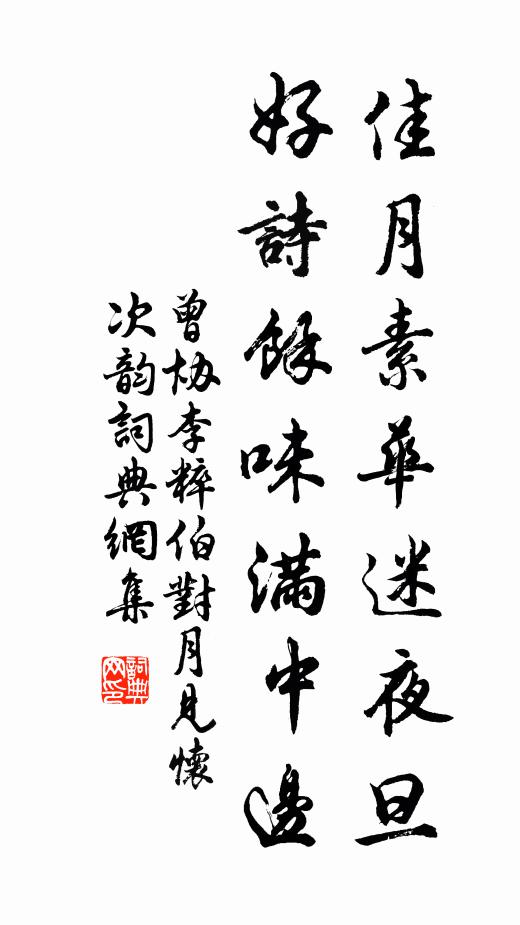 佳月素華迷夜旦
好詩餘味滿中邊
曾协李粹伯對月見懷
次韵詞典網集
詞典网印